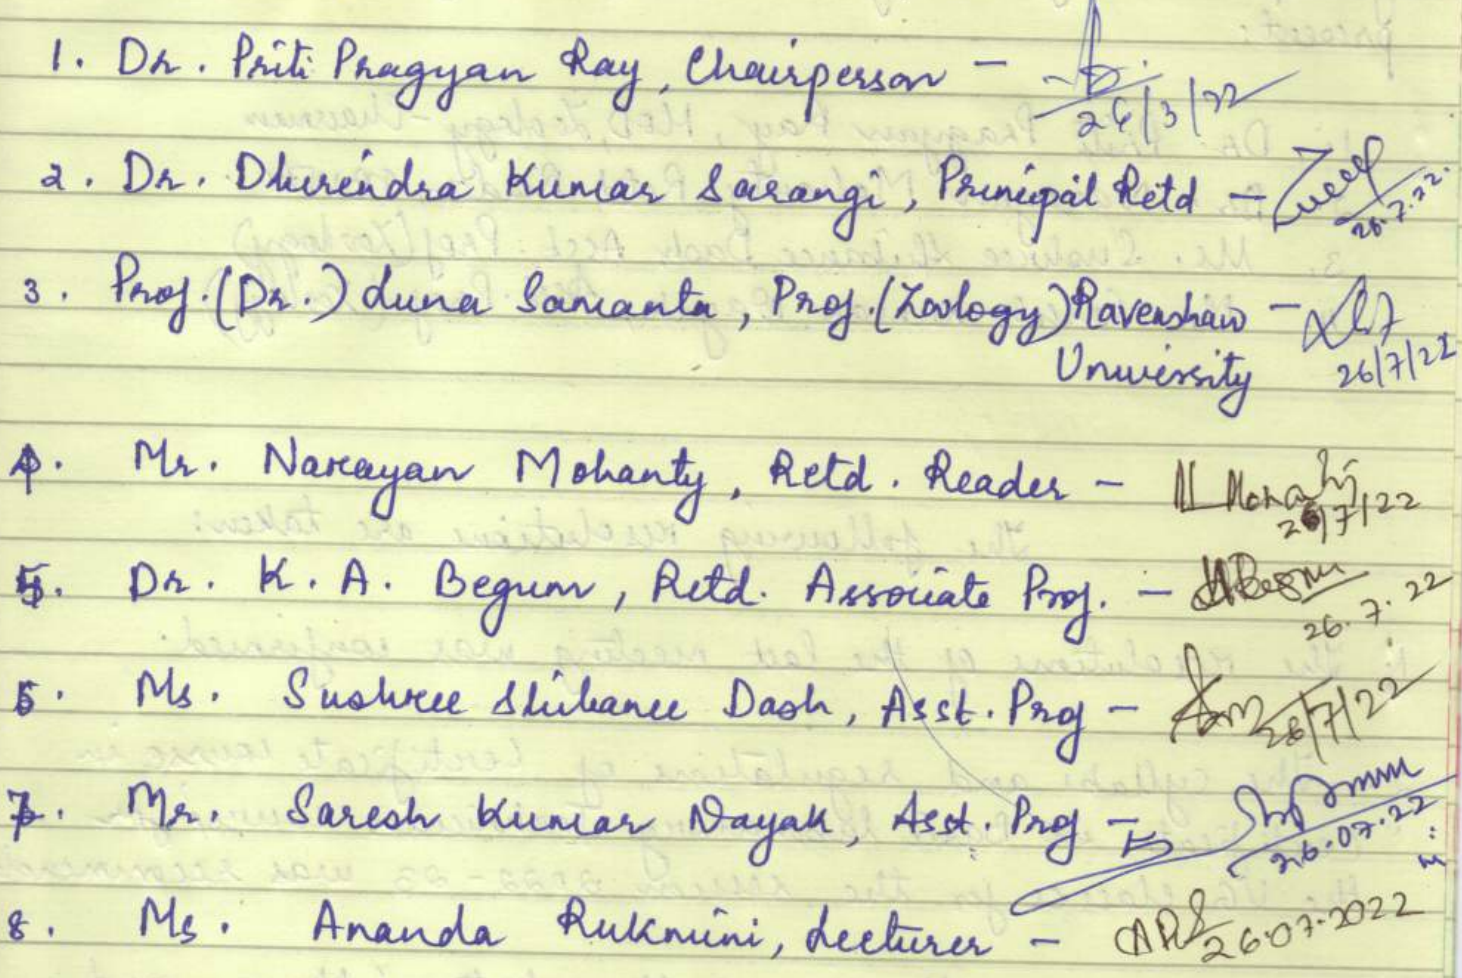 1. Dr. Priti Pragyan Ray, Chairperson - 26/3/22
2. Dr. Dhirendra Kumar Sarangi, Principal Retd - 26.7.22.
3. Prof. (Dr.) Luna Samanta, Prof. (Zoology) Ravenshaw - 26/7/22
University
4. Mr. Narayan Mohanty, Retd. Reader - N Mohanty 26/7/22
5. Dr. K. A. Begum, Retd. Associate Prof. - KABegum 26.7.22
6. Ms. Sushree Shibanee Dash, Asst. Prof - 26/7/22
7. Mr. Saresh Kumar Nayak, Asst. Prof - 26.07.22
8. Ms. Ananda Rukmini, Lecturer - 26.07.2022